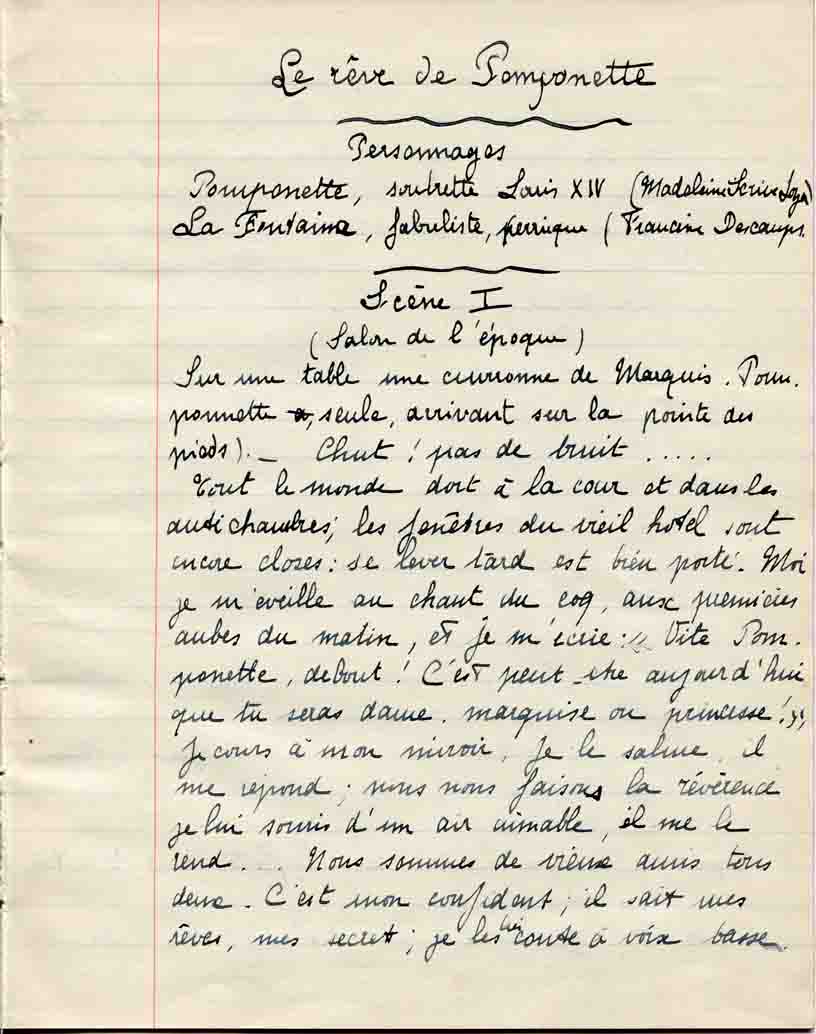 Le rêve de Pomponette
Personnages
Pomponette, soubrette Louis XIV (Madeleine Scrive Loyer)
La Fontaine, fabuliste, perruque (Francine Descamps.
Scène I
(Salon de l'époque)
Sur une table une couronne de Marquis. Pom.
ponnette a, seule, arrivant sur la pointe des
pieds). _ Chut! pas de bruit .....
Tout le monde dort à la cour et dans les
antichambres; les fenêtres du vieil hotel sont
encore closes: se lever tard est bien porté. Moi
je m'eveille au chant du coq, aux premières
aubes du matin, et je m'écrie: « Vite Pom.
ponette, debout! C'est peut-etre aujourd'hui
que tu seras dame. marquise ou princesse! »,
Je cours à mon miroir, Je le salue, il
me repond; nous nous faisons la révérence
je lui souris d'un air aimable, il me le
rend... Nous sommes de vieux amis tous
deux. C'est mon confident; il sait mes
rêves, mes secret; je les lui conte à voix basse.